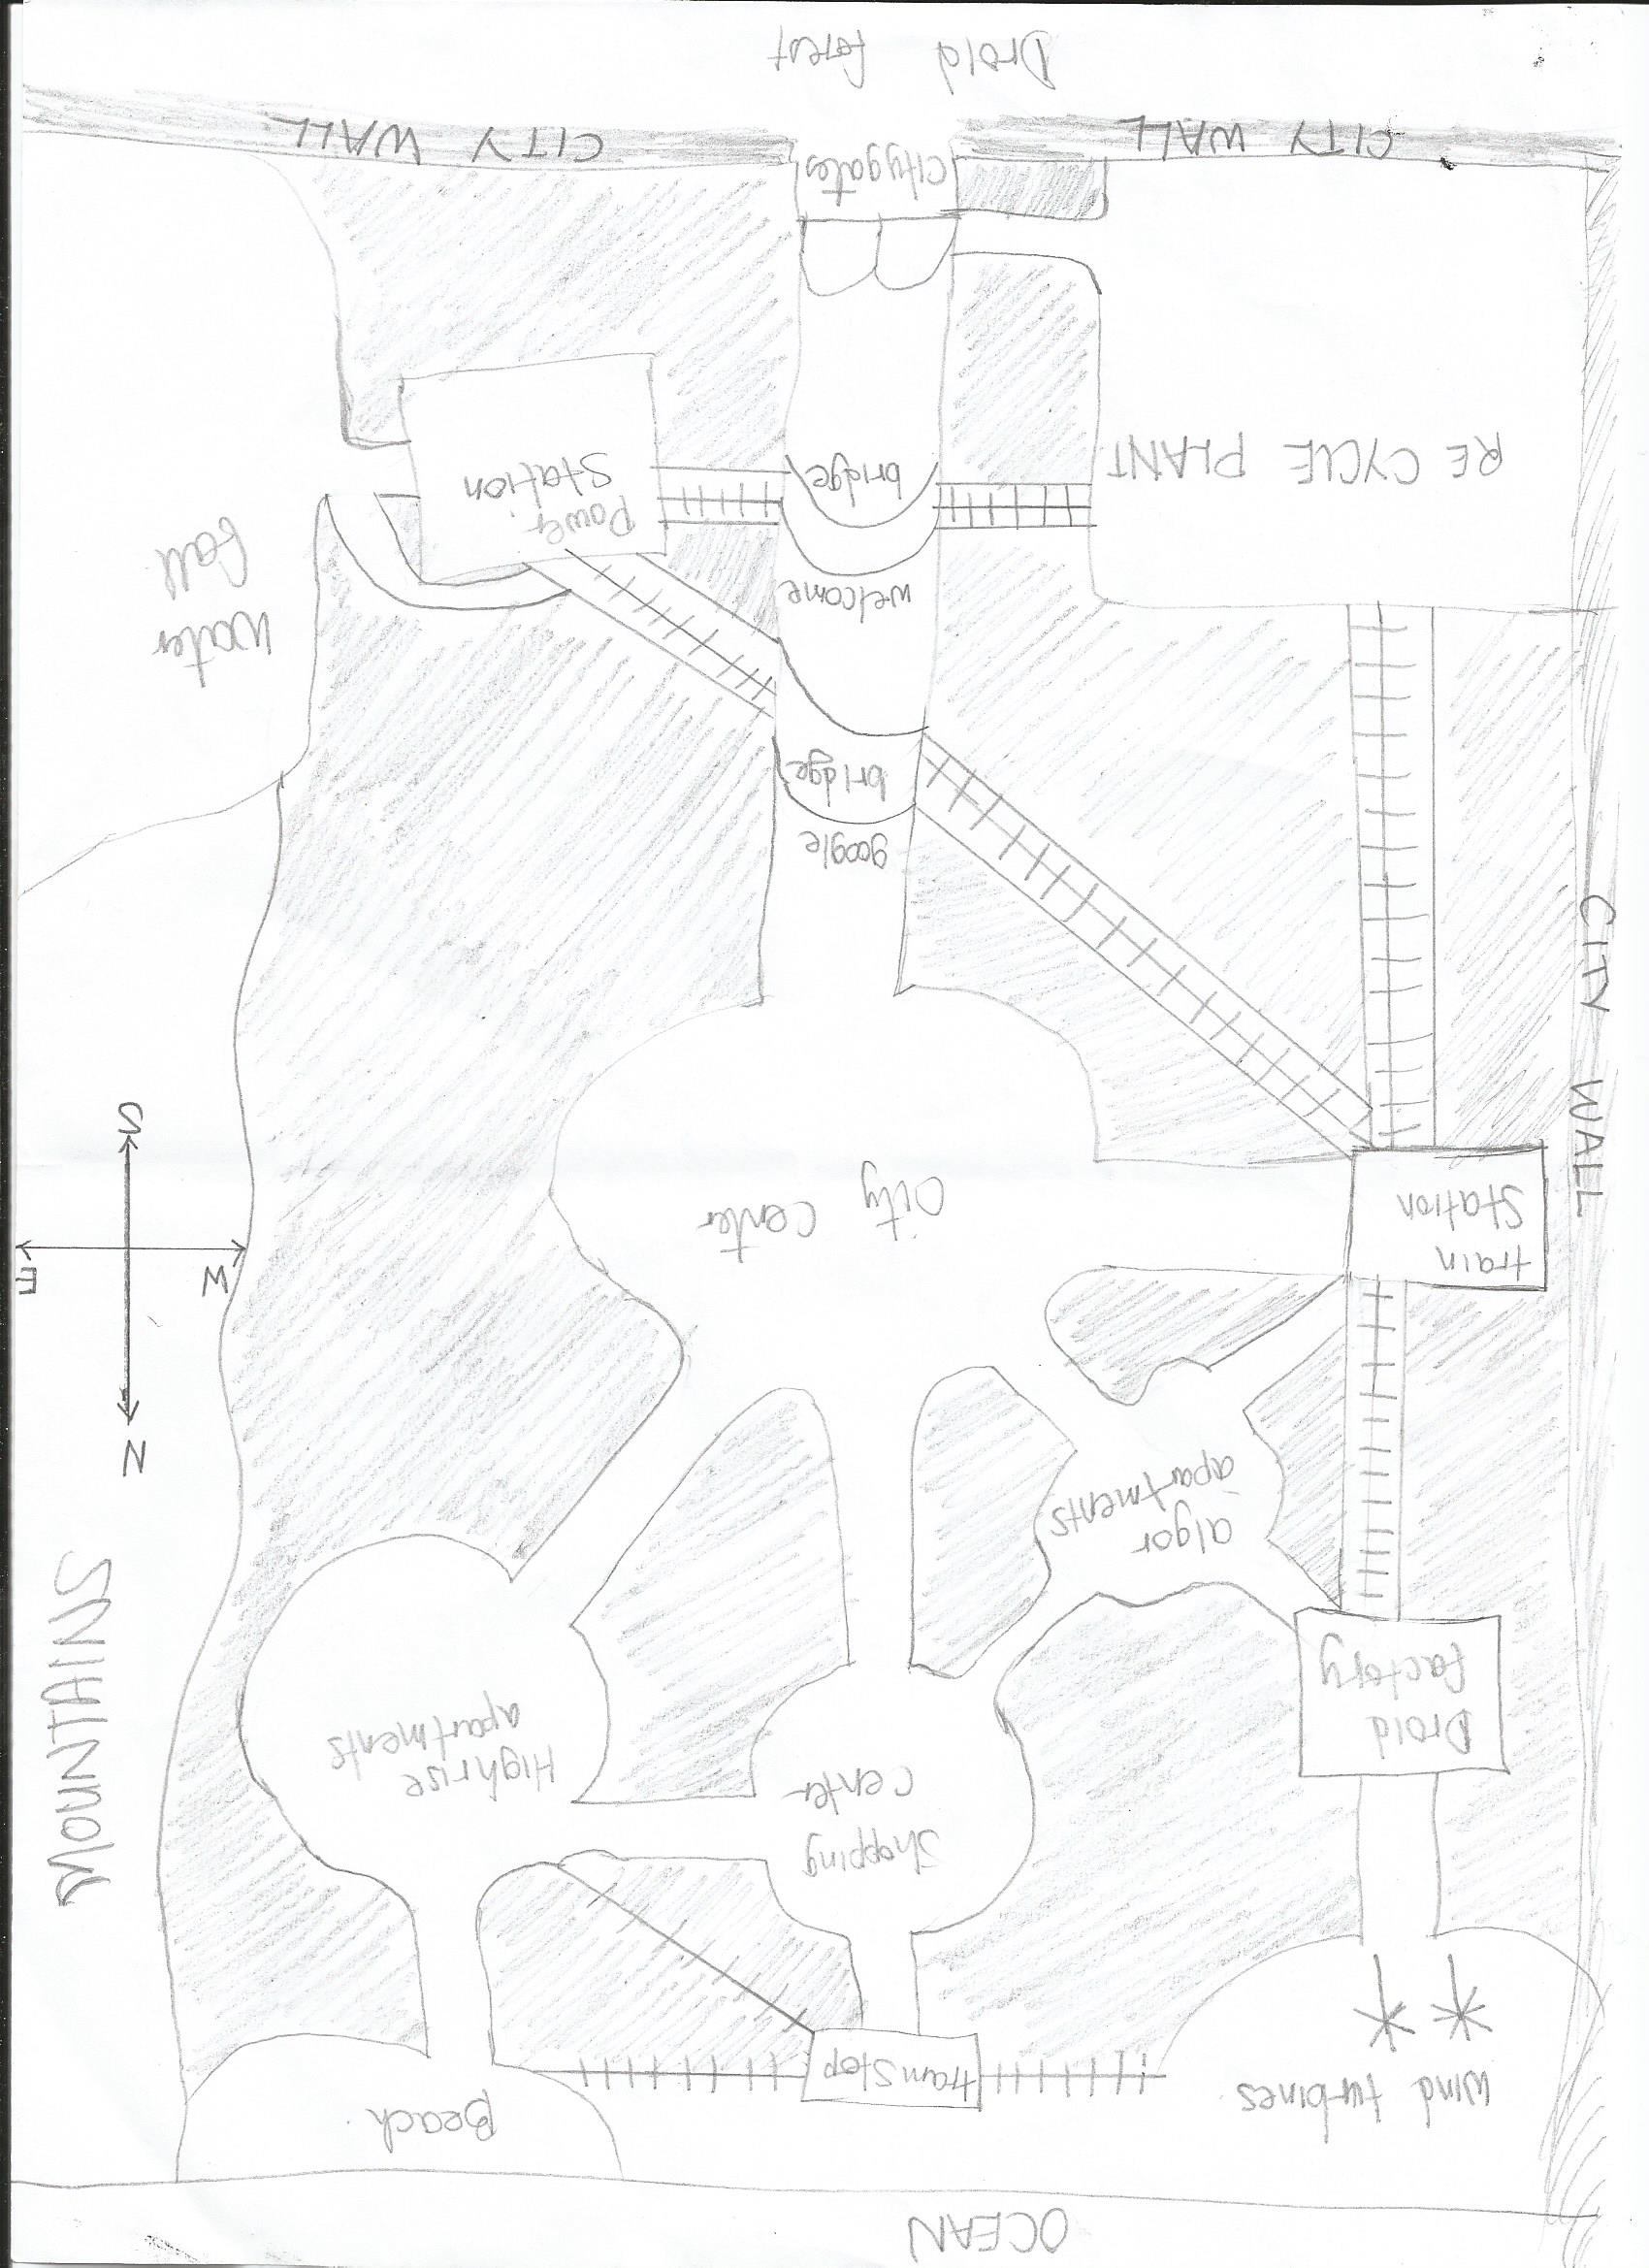 OCEAN
Beach.
Wind turbines
tram stop
Shopping
center
Highrise
apartments
MOUNTAINS
Droid
factory
algor
apartments
N
W
E
S
train
Station
City center
CITY WALL
google
bridge
welcome
bridge
Water
fall
Power
Station
RE CYCLE PLANT
City gates
CITY WALL
CITY WALL
Droid forest